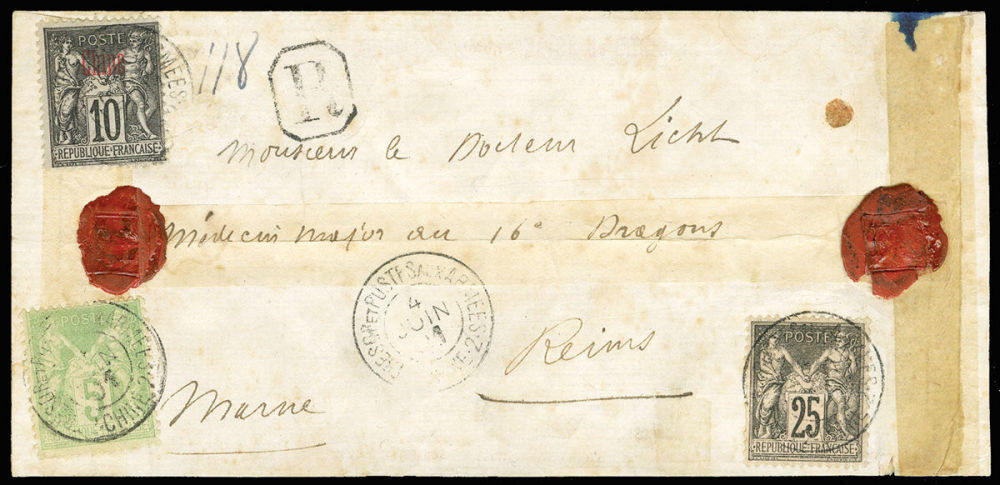 POSTE
Chine
10
RÉPUBLIQUE FRANÇAISE
118
R
Monsieur le Docteur Licht
Médecin Major au 16e Dragons
TRESOR ET POSTES AUX ARMEES
4
JUIN
Reims
POSTE
5
CHINE
Marne
POSTE
25
RÉPUBLIQUE FRANÇAISE